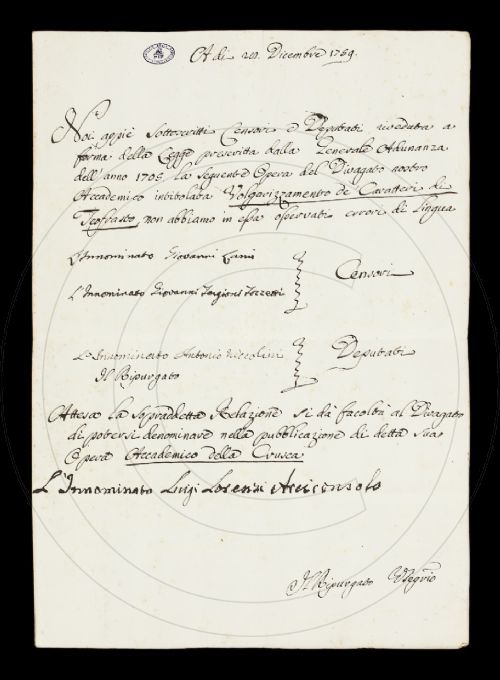 A di 20. Dicembre 1759.
Noi appiè Sottoscritti Censori e Deputati riveduta a
forma della Legge prescritta dalla Generale Adunanza
dell'anno 1705. la seguente Opera del Divagato nostro
Accademico intitolata Volgarizzamento de' Caratteri di
Teofrasto, non abbiamo in essa osservati errori di lingua
L'Innominato Giovanni Lami
Censori
L'Innominato Giovanni Targioni Tozzetti
L'Innominato Antonio Niccolini
Deputati
Il Ripurgato
Attesa la sopraddetta Relazione si dà facoltà al Divagato
di potersi denominare nella pubblicazione di detta sua
Opera Accademico della Crusca
L'Innominato Luigi Lorenzi Arciconsolo
Il Ripurgato Segrio